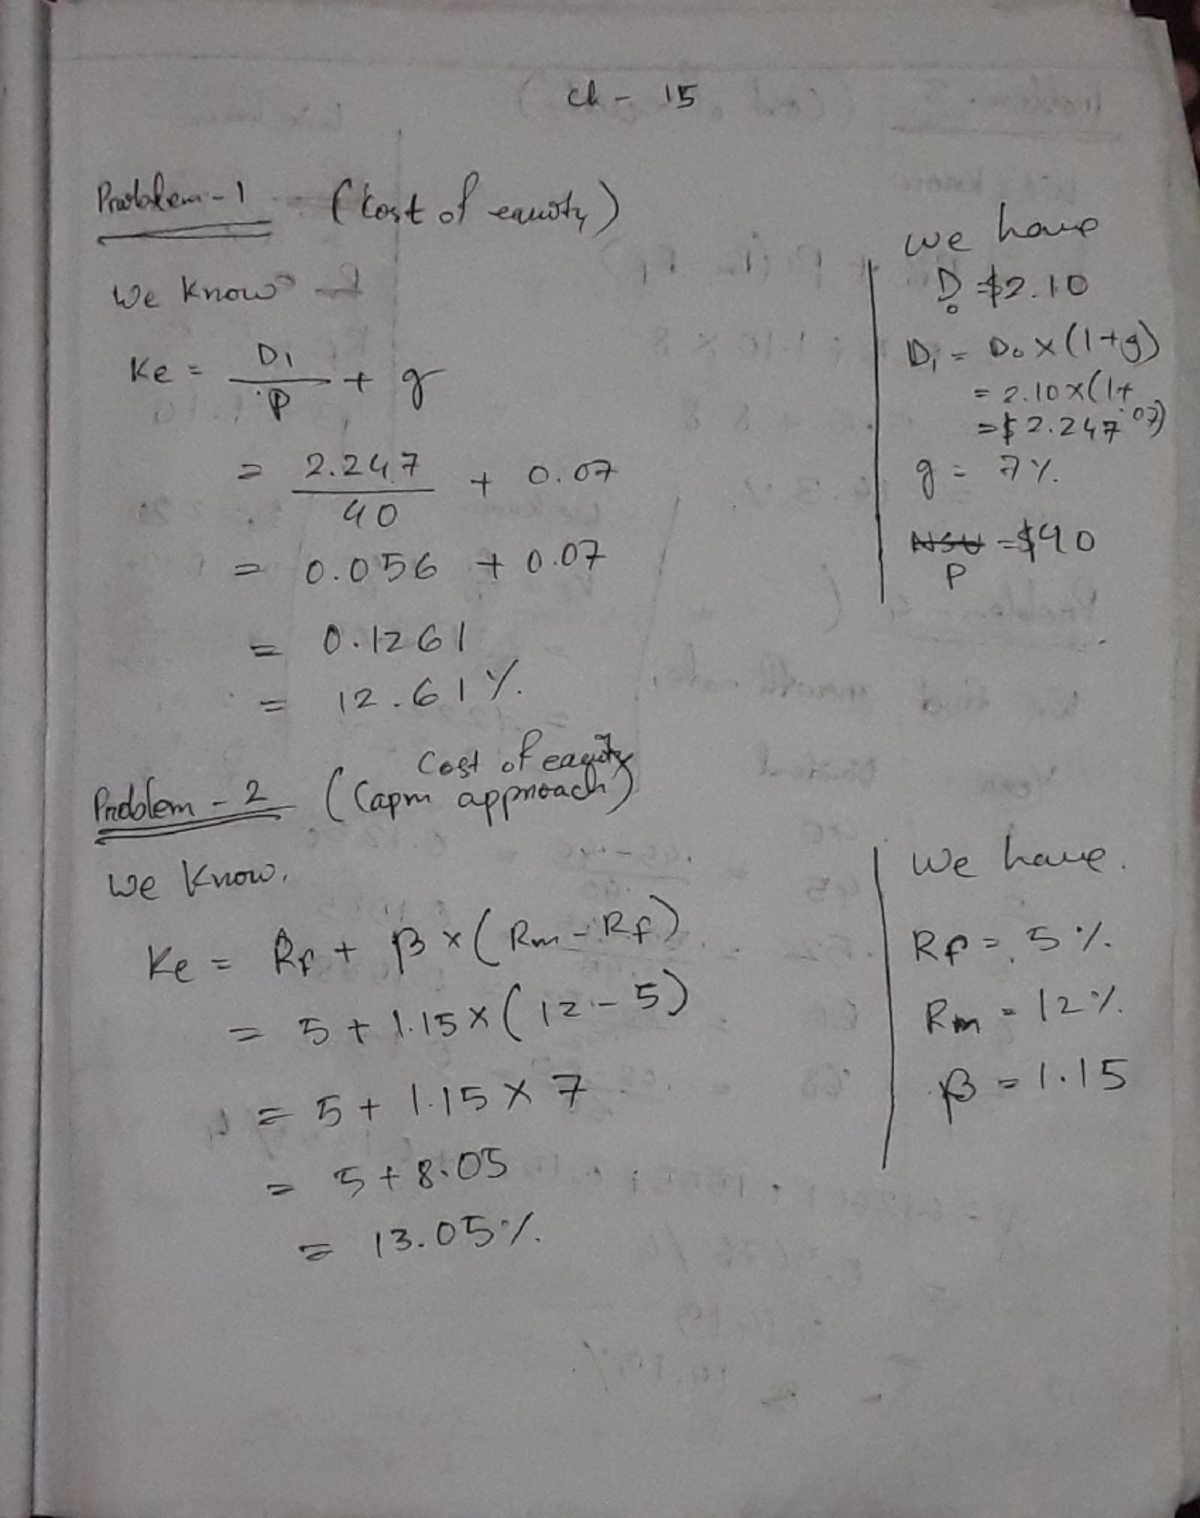 ch - 15
Problem - 1 (Cost of equity)
We know
Ke = D₁ / P + g
= 2.247 / 40 + 0.07
= 0.056 + 0.07
= 0.1261
= 12.61%
we have
D₀ = $2.10
D₁ = D₀ x (1+g)
= 2.10 x (1+
.07)
= $2.247
g = 7%
= $40
P
Cost of equity
Problem - 2 (Capm approach)
We know,
Ke = Rf + β x (Rm - Rf)
= 5 + 1.15 x (12 - 5)
= 5 + 1.15 x 7
= 5 + 8.05
= 13.05%
We have.
Rf = 5%
Rm = 12%
β = 1.15